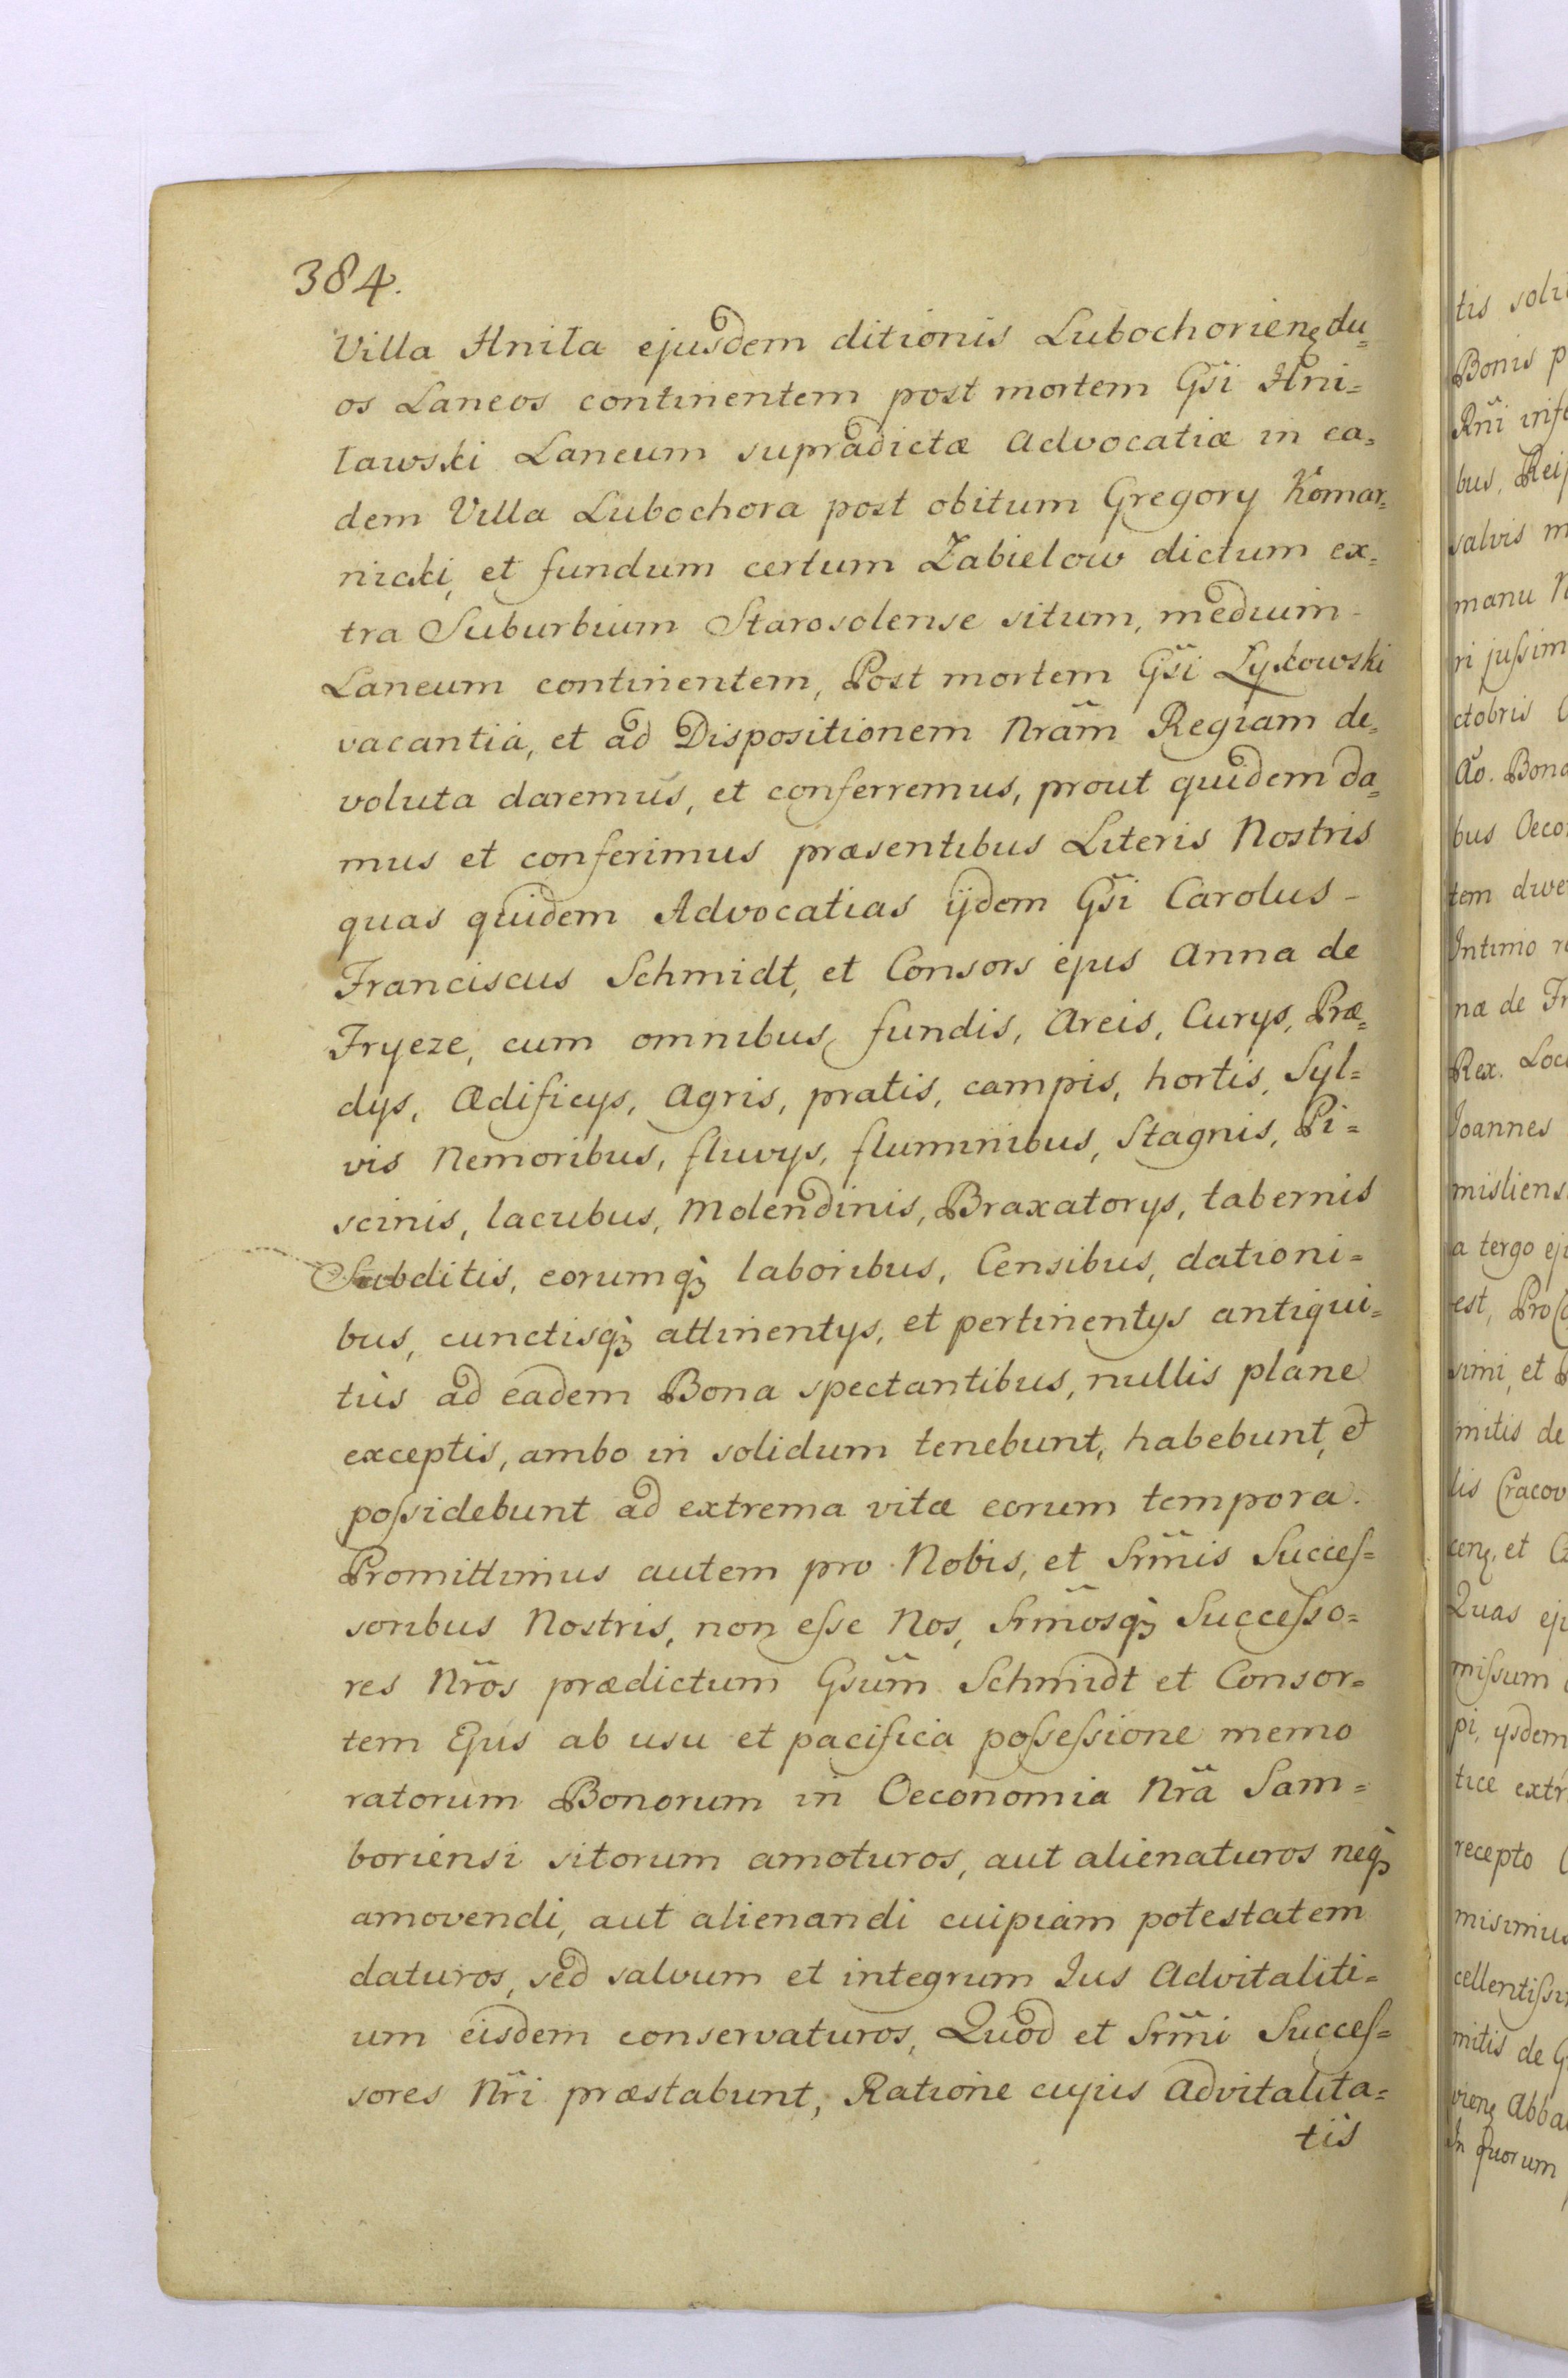 384.
Villa Hniła ejusdem ditionis Lubochorienę du=
os Laneos continentem post mortem Gs̃i Hni=
ławski Laneum supradictæ Advocatiæ in ea=
dem Villa Lubochora post obitum Gregorÿ Komar=
nicki, et fundum certum Zabielow dictum ex=
tra Suburbium Starosolense situm, medium-
Laneum continentem, Post mortem Gs̃i Łykowski
vacantia, et ad Dispositionem Nrãm Regiam de=
voluta daremus, et conferremus, prout quidem da=
mus et conferimus præsentibus Literis Nostris
quas quidem Advocatias ijdem Gs̃i Carolus-
Franciscus Schmidt, et Consors ejus Anna de
Fryeze, cum omnibus fundis, Areis, Curÿs, Præ=
dÿs, Ædificÿs, Agris, pratis, campis, hortis, Syl=
vis Nemoribus, fluvÿs, fluminibus, Stagnis, Pi=
scinis, lacubus, Molendinis, Braxatorÿs, tabernis
Subditis, eorumq̀ laboribus, Censibus, dationi=
bus, cunctisq̀ attinentÿs, et pertinentÿs antiqui=
tus ad eadem Bona spectantibus, nullis plane
exceptis, ambo in solidum tenebunt, habebunt, et
poſsidebunt ad extrema vitæ eorum tempora.
Promittimus autem pro Nobis, et Srm̃is Succeſ=
soribus Nostris, non eſse Nos, Srm̃osq̀ Succeſso=
res Nrõs prædictum Gsũm Schmidt et Consor=
tem Ejus ab usu et pacifica poſseſsione memo
ratorum Bonorum in Oeconomia Nrã Sam=
boriensi sitorum amoturos, aut alienaturos neq̀
amovendi, aut alienandi cuipiam potestatem
daturos, sed salvum et integrum Jus Advitaliti=
um eisdem conservaturos, Quod et Srm̃i Succeſ=
sores Nrĩ præstabunt, Ratione cujus Advitalita=
tis
tis
Bonis
bus,
salvis
manu
ctobris
Aõ. Bono
bus
tem
Intimo
næ de
Rex.
Joannes
a tergo
est,
et
mitis de
et
Quas
ysdem
recepto
mitis de
quorum